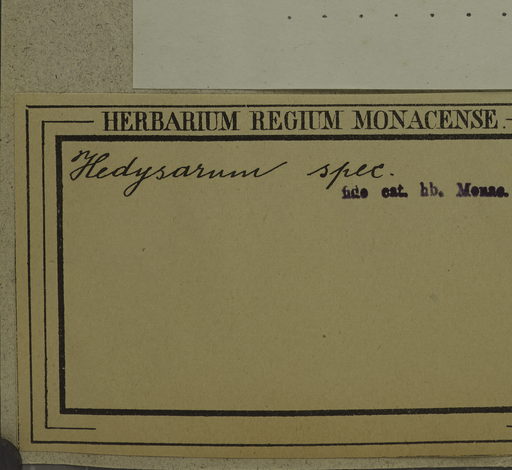 HERBARIUM REGIUM MONACENSE.
Hedysarum spec.
fide cat. hb. Monac.